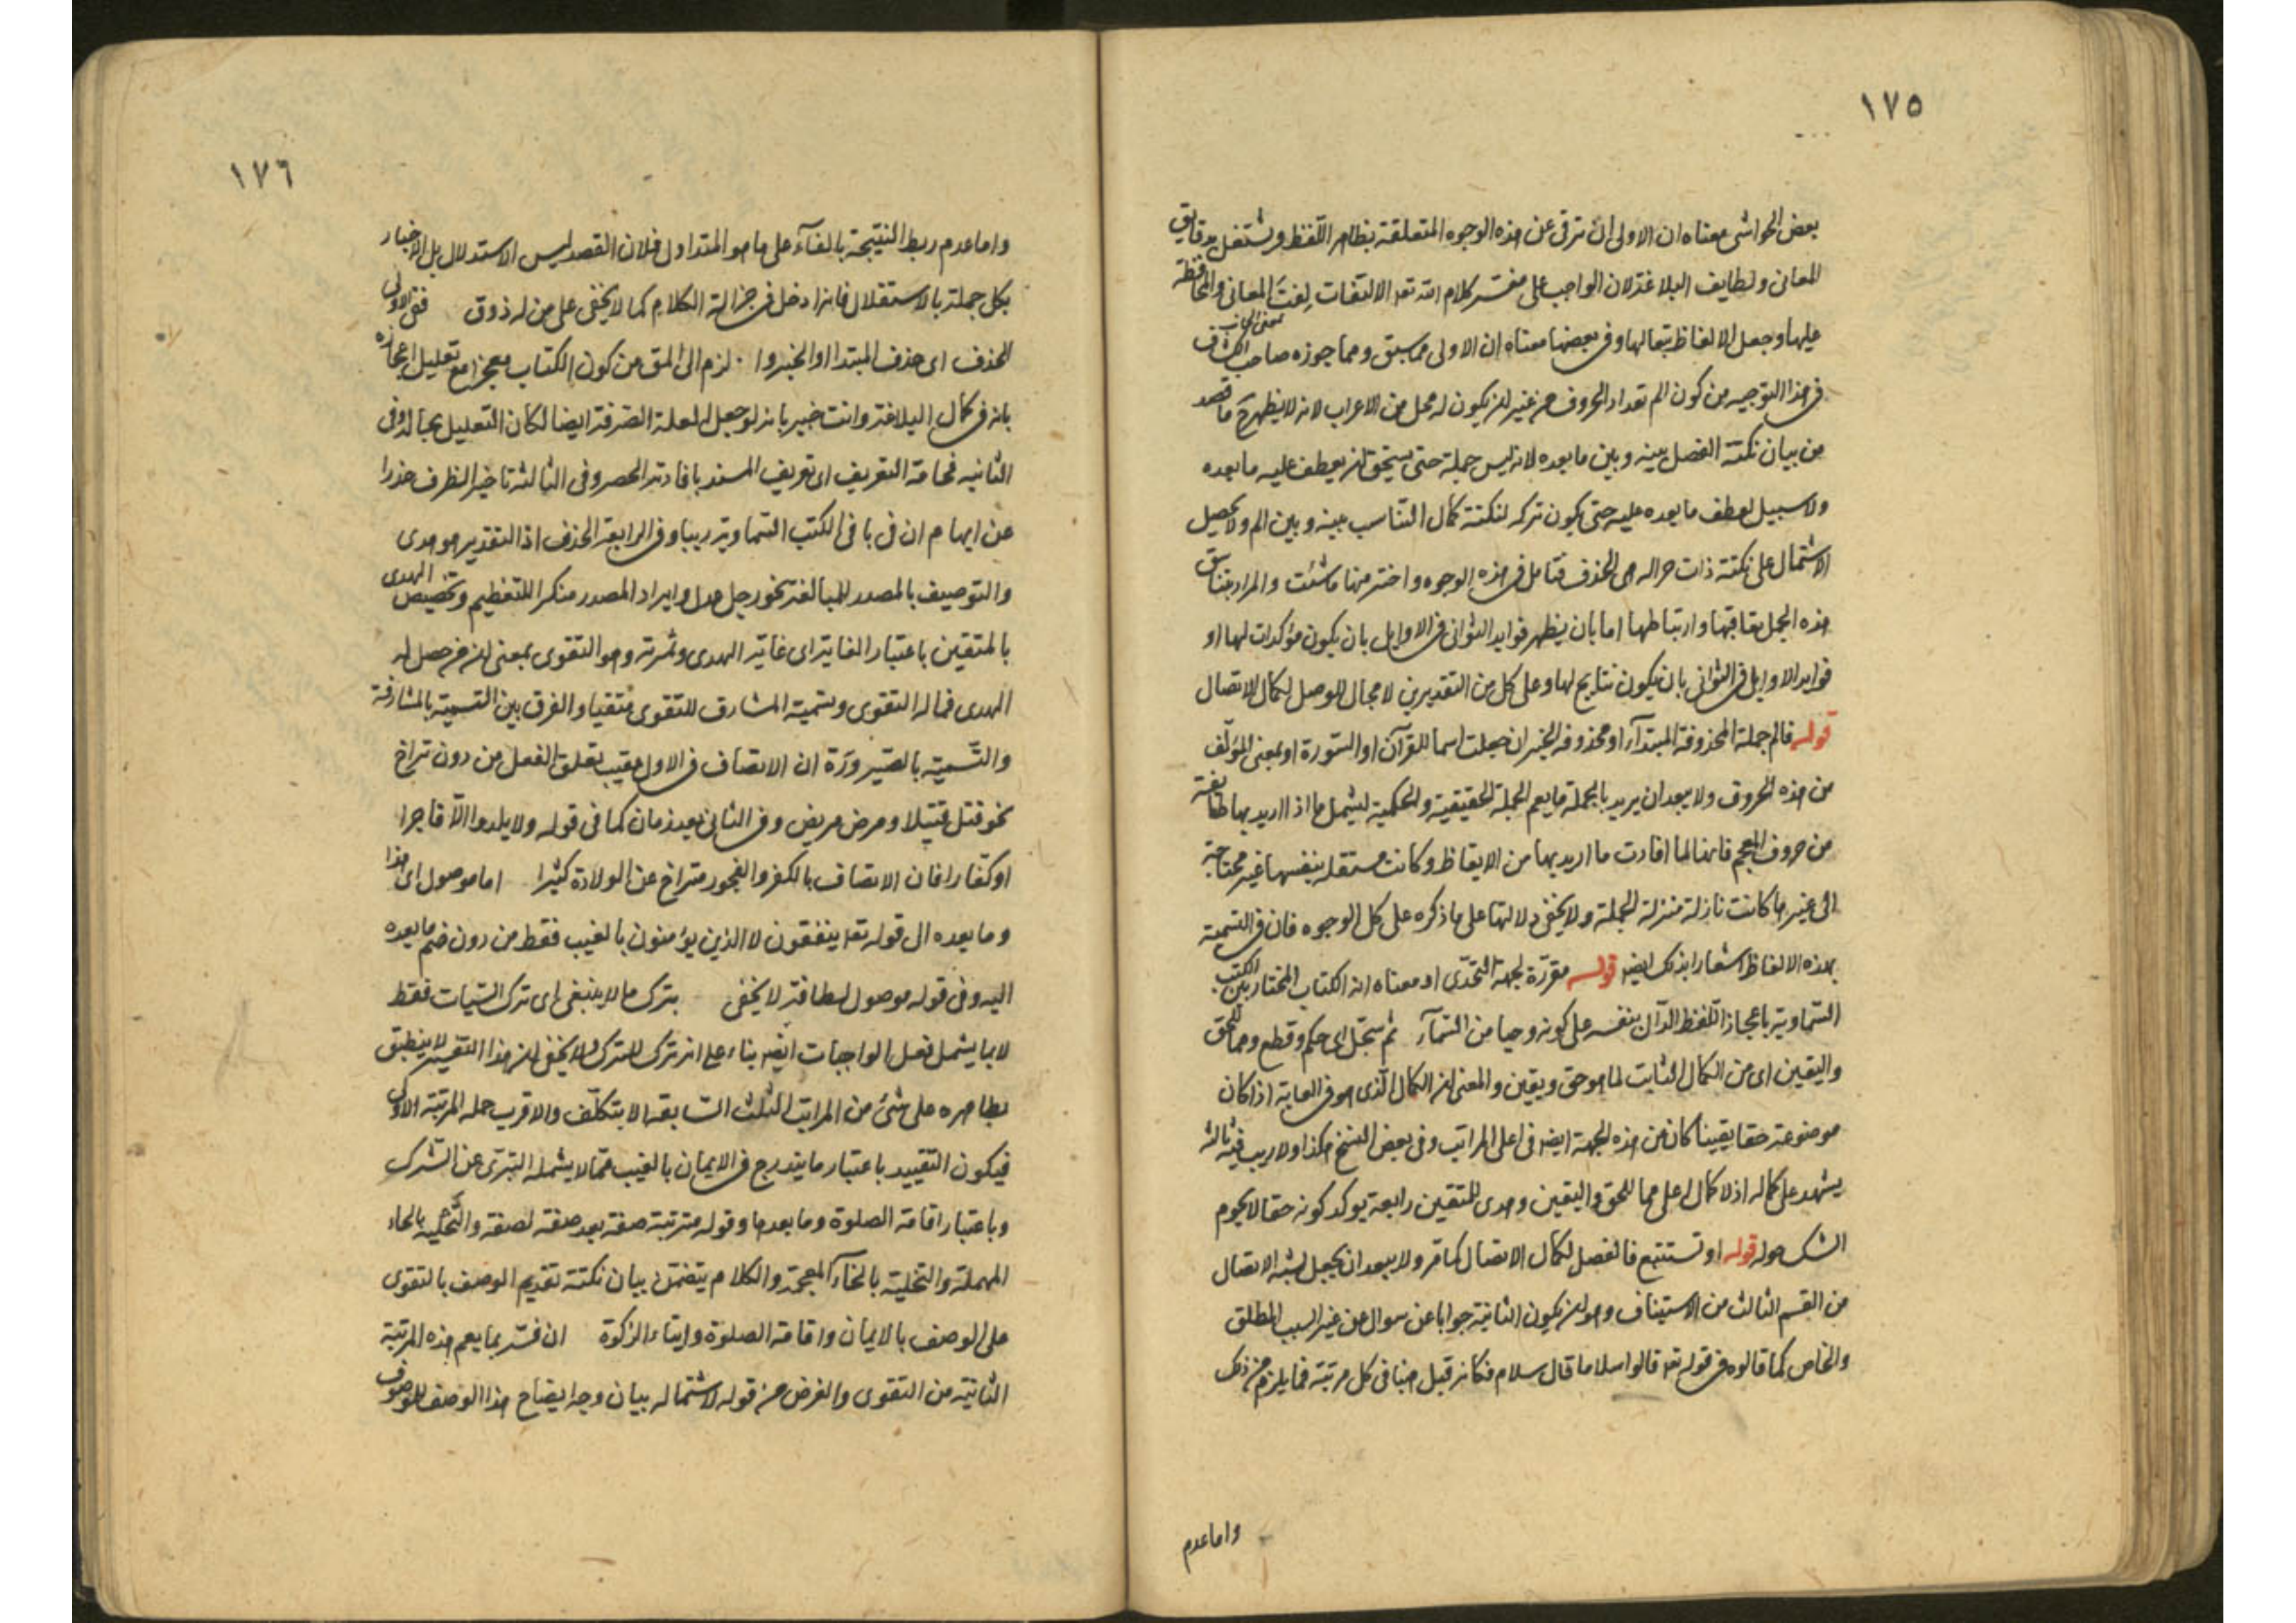 ١٧٥
بعض الحواشى معناه ان الاولى ان ترقى عن هذه الوجوه المتعلقة بظاهر اللفظ وتشتغل بدقايق
المعانى ولطايف البلاغة لان الواجب على مفسر كلام الله تعـ الالتفات لفت المعانى والمحافظة
عليها وجعل الالفاظ تبعا لها وفى بعضها معناه ان الاولى مما سبق ومما جوزه صاحب الكشاف
فى هذا التوجيه من كون الم تعداد الحروف من غير ان يكون له محل من الاعراب لانه لا يظهر ح ما قصد
من بيان نكتة الفصل بينه وبين ما بعده لانه ليس جملة حتى يستحق ان يعطف عليه ما بعده
ولا سبيل لعطف ما بعده عليه حتى يكون تركه لنكتة كمال التناسب بينه وبين الم ولا يحصل
الاشتمال على نكتة ذات جزاله هى الحذف فتامل فى هذه الوجوه واختر منها ما شئت والمراد بتناسق
هذه الجمل تعاقبها وارتباطها اما بان يظهر فوايد الثوانى فى الاوايل بان يكون مؤكدات لها او
فوايد الاوايل فى الثوانى بان يكون نتايج لها وعلى كل من التقديرين لا مجال للوصل لكمال الاتصال
قوله فالم جملة المحذوفة المبتدآء او محذوفه الخبر ان جعلت اسما للقرآن او السورة او بمعنى المؤلف
من هذه الحروف ولا يبعد ان يريد بالجملة ما يعم الجملة الحقيقية والحكمية ليشمل ما اذا اريد بها طايفة
من حروف المعجم فانها لما افادت ما اريد بها من الايقاظ وكانت مستقله بنفسها غير محتاجة
الى غيرها كانت نازلة منزلة الجملة ولا يخفى دلالتها على ما ذكره على كل الوجوه فان فى التسمية
بهذه الالفاظ اشعارا بذلك ايضا قوله مقررة لجهة التحدى اذ معناه انه الكتاب المختار بين الكتب
السماوية باعجاز اللفظ الدال بنفسه على كونه وحيا من السمآء ثم سجل اى حكم وقطع ومما للحق
واليقين اى من الكمال الثابت لما هو حق ويقين والمعنى ان الكمال الذى هو فى الغاية اذا كان
موضوعة حقا يقينا كان من هذه الجهة ايضا فى اعلى المراتب وفى بعض النسخ هكذا ولا ريب فيه ثالثة
يشهد على كماله اذ لا كمال اعلى مما للحق واليقين وهدى للمتقين رابعة يوكد كونه حقا لا يحوم
الشك حوله قوله او تستتبع فالفصل لكمال الاتصال كما مر ولا يبعد ان يجعل لشبه الاتصال
من القسم الثالث من الاستيناف وهو ان يكون الثانية جوابا عن سوال عن غير السبب المطلق
والخاص كما قالوه فى قوله تعـ قالوا سلاما قال سلام فكانه قيل هنا فى كل مرتبة فما يلزم من ذلك
واما عدم
١٧٦
واما عدم ربط النتيجة بالفآء على ما هو المتداول فلان القصد ليس الاستدلال بل الاخبار
بكل جملة بالاستقلال فانه ادخل فى جزالة الكلام كما لا يخفى على من له ذوق ففى الاولى
الحذف اى حذف المبتدا او الخبر والرمز الى المق من كون الكتاب معجزا مع تعليل اعجازه
بانه فى كمال البلاغة وانت خبير بانه لو جعل لعلة الصرفة ايضا لكان التعليل بحاله وفى
الثانيه فخامة التعريف اى تعريف المسند بافادته الحصر وفى الثالثة تاخير الظرف حذرا
عن ايهام ان فى باقى الكتب السماوية ريبا وفى الرابعة الحذف اذ التقدير هو هدى
والتوصيف بالمصدر للمبالغة نحو رجل عدل وايراد المصدر منكرا للتعظيم وتخصيص الهدى
بالمتقين باعتبار الغاية اى غاية الهدى وثمرته وهو التقوى بمعنى ان من حصل له
الهدى فماله التقوى وتسمية المشارف للتقوى متقيا والفرق بين التسمية بالمشارفة
والتسمية بالصيرورة ان الاتصاف فى الاول عقيب تعلق الفعل من دون تراخ
نحو قتل قتيلا ومرض مريض وفى الثانى بعد زمان كما فى قوله ولا يلدوا الا فاجرا
او كفارا فان الاتصاف بالكفر والفجور متراخ عن الولادة كثيرا اما موصول اى هذا
وما بعده الى قوله تعـ ينفقون لا الذين يؤمنون بالغيب فقط من دون ضم ما بعده
اليه وفى قوله موصول لطافة لا يخفى بترك ما لا ينبغى اى ترك السيئات فقط
لا بما يشمل فعل الواجبات ايضا بناء على انه ترك للترك ولا يخفى ان هذا التفسير لا ينطبق
بظاهره على شئ من المراتب الثلث السابقه الا بتكلف والاقرب حمله المرتبة الاولى
فيكون التقييد باعتبار ما يندرج فى الايمان بالغيب مما لا يشمله التبرى عن الشرك
وباعتبار اقامة الصلوة وما بعدها وقوله مترتبة صفة بعد صفة لصفة والتحلية بالحاء
المهملة والتخلية بالخآء المعجمة والكلام يتضمن بيان نكتة تقديم الوصف بالتقوى
على الوصف بالايمان واقامة الصلوة وايتاء الزكوة ان فسر بما يعم هذه المرتبة
الثانية من التقوى والغرض من قوله لاشتماله بيان وجه ايضاح هذا الوصف للموصوف